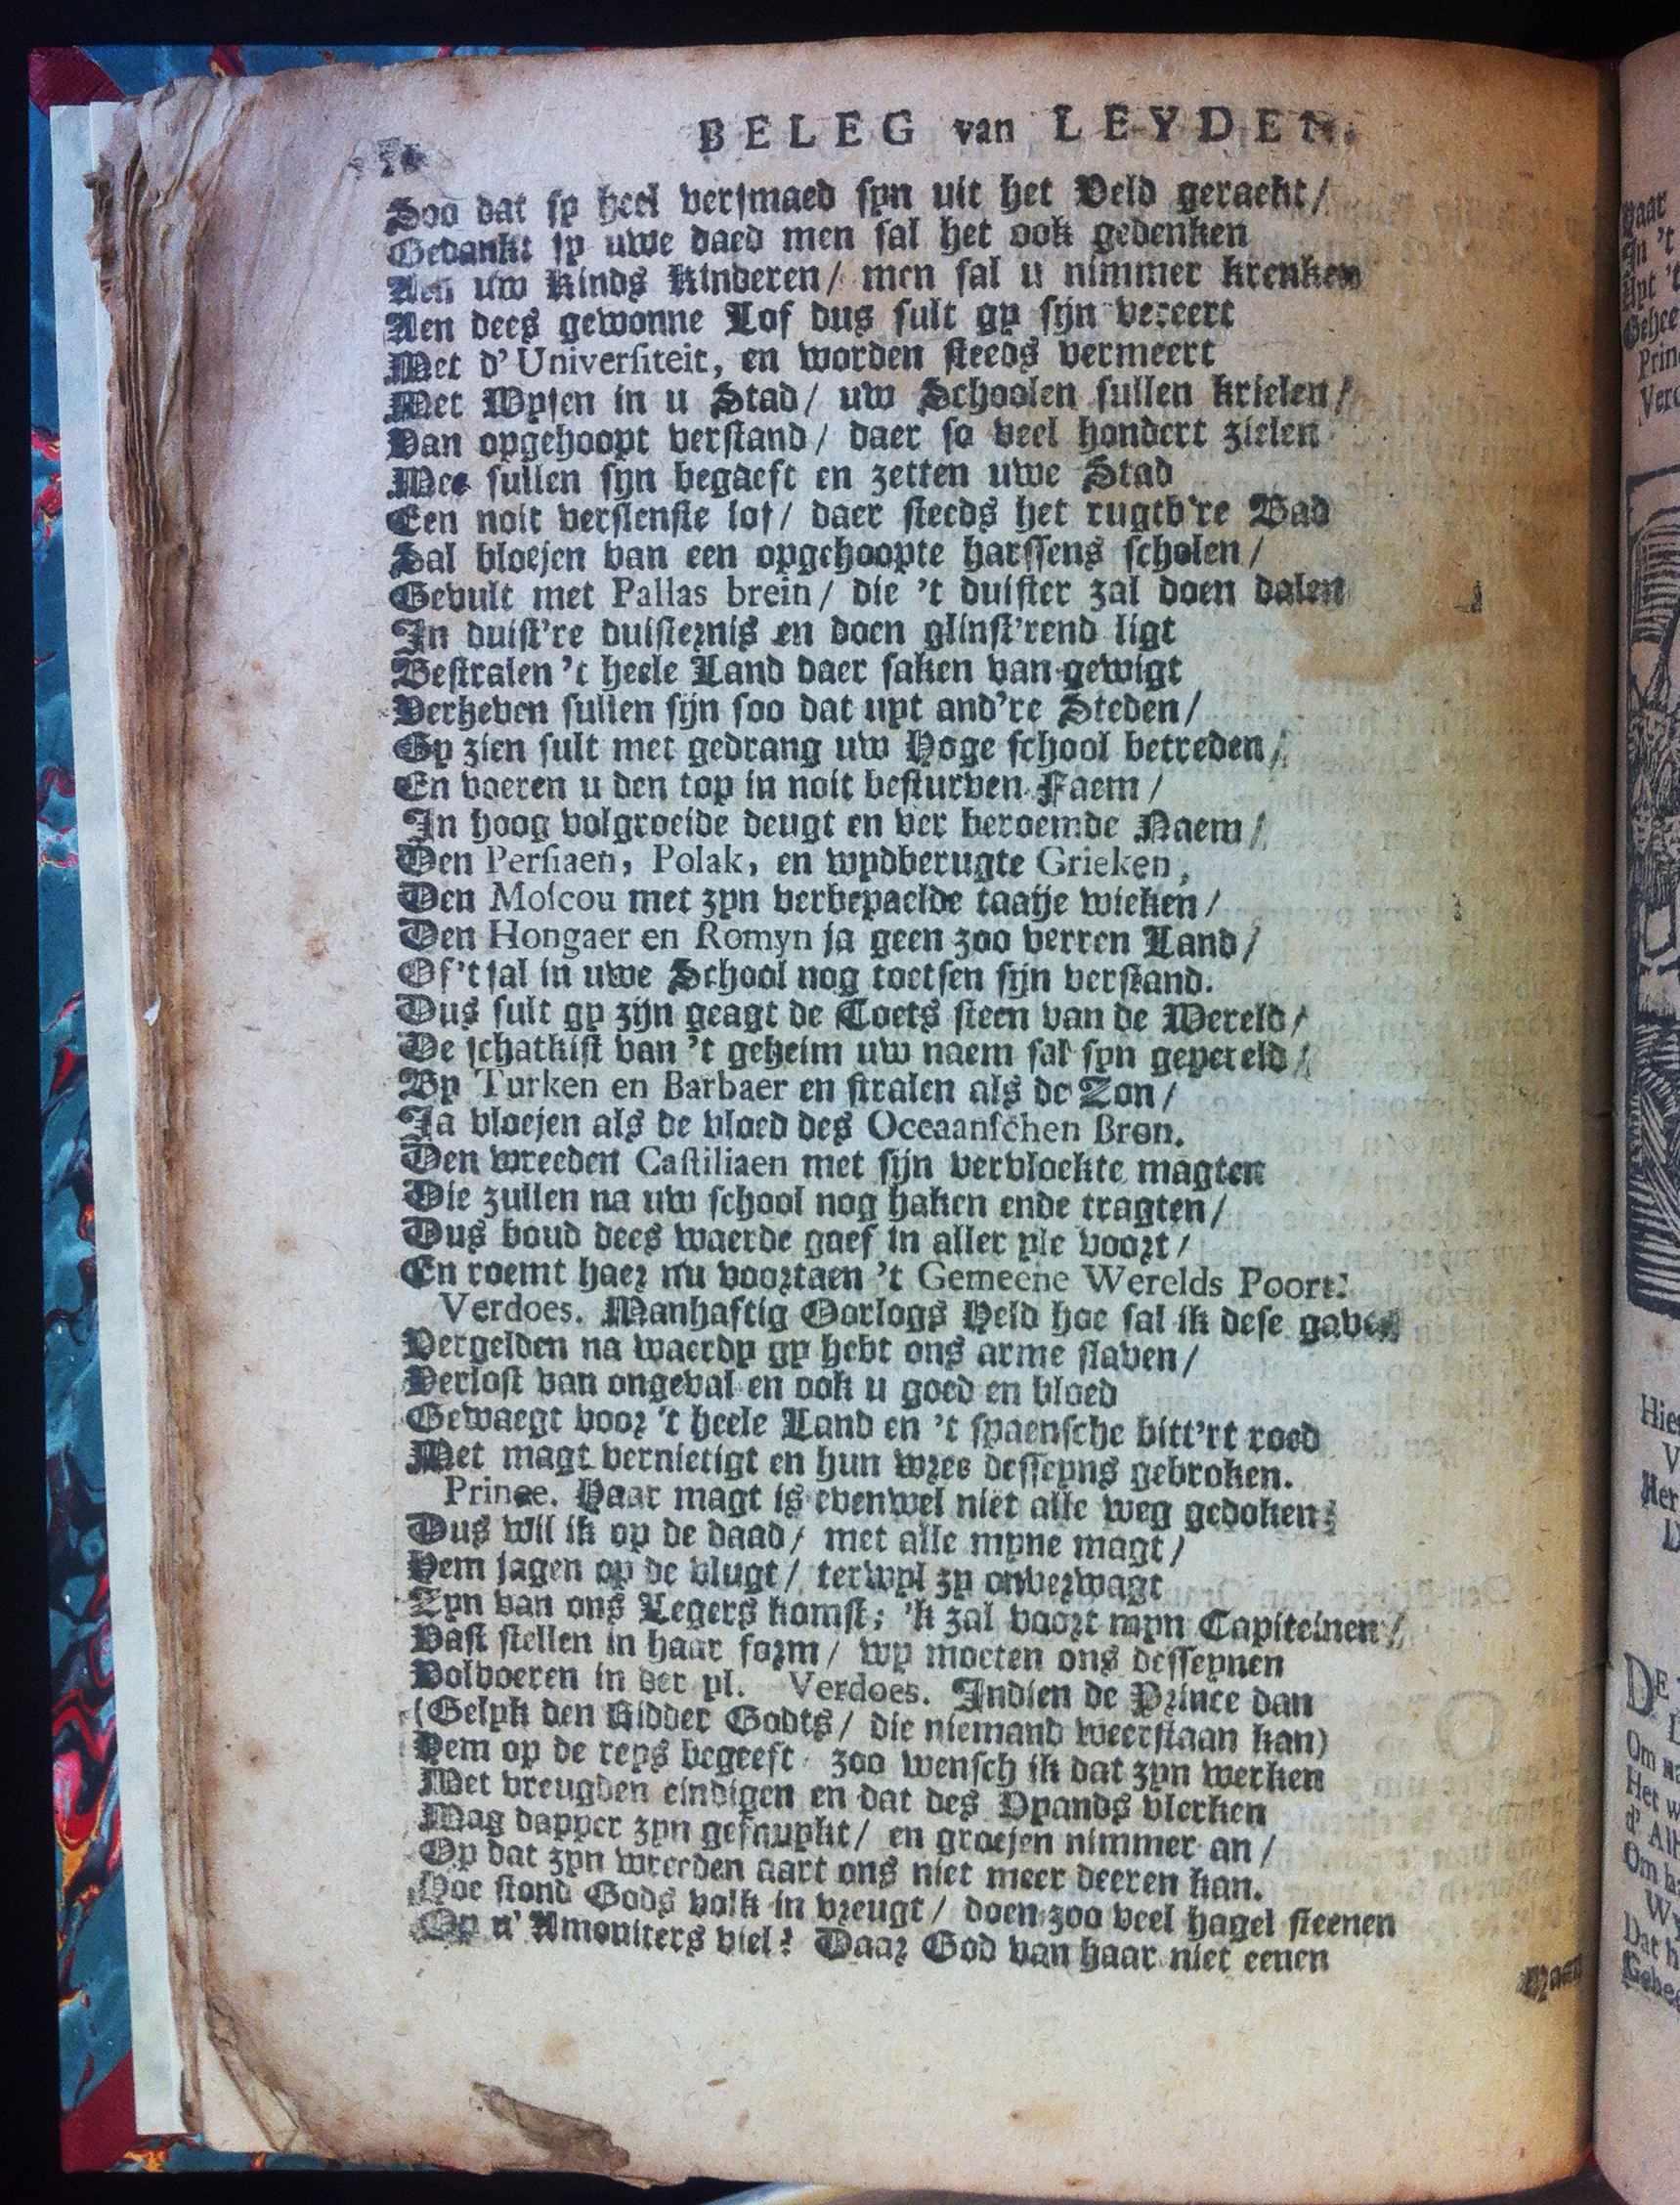 BELEG van LEYDEN.
Soo dat sy heel versmaed syn uit het Veld geraekt/
Gedankt sy uwe daed men sal het ook gedenken
Aen uw Kinds Kinderen/ men sal u nimmer krenken
Aen dees gewonne Lof dus sult gy sijn vereert
Met d'Universiteit, en worden steeds vermeert
Met Wysen in u Stad/ uw Schoolen sullen krielen/
Van opgehoopt verstand/ daer so veel hondert zielen
Mee sullen syn begaeft en zetten uwe Stad
Een noit verslenste lof/ daer steeds het rugtb're Bad
Sal vloejen van een opgehoopte harssens scholen/
Gevult met Pallas brein/ die 't duister zal doen dalen
In duist're duisternis en doen glinst'rend ligt
Bestralen 't heele Land daer saken van gewigt
Verheven sullen sijn soo dat uyt and're Steden/
Gy zien sult met gedrang uw Hoge school betreden/
En voeren u den top in noit besturven Faem/
In hoog volgroeide deugt en ver beroemde Naem/
Den Persiaen, Polak, en wydberugte Grieken,
Den Moscou met zyn verbepaelde taaije wieken/
Den Hongaer en Romyn ja geen zoo verren Land/
Of 't sal in uwe School nog toetsen sijn verstand.
Dus sult gy zijn geagt de Toets steen van de Wereld/
De schatkist van 't geheim uw naem sal syn gepereld/
By Turken en Barbaer en stralen als de Zon/
Ja vloejen als de vloed des Oceaanschen Bron.
Den wreeden Castiliaen met sijn vervloekte magten
Die zullen na uw school nog haken ende tragten/
Dus voud dees waerde gaef in aller yle voort/
En roemt haer nu voortaen 't Gemeene Werelds Poort.
Verdoes. Manhaftig Oorlogs Held hoe sal ik dese gaven
Vergelden na waerdy gy hebt ons arme slaven/
Verlost van ongeval en ook u goed en bloed
Gewaegt voor 't heele Land en 't spaensche bitt'rt roed
Met magt vernietigt en hun wree desseyns gebroken.
Prince. Haar magt is evenwel niet alle weg gedoken;
Dus wil ik op de daad/ met alle myne magt/
Hem jagen op de vlugt/ terwyl zy onverwagt
Zyn van ons Legers komst; 'k zal voort myn Capiteinen/
Vast stellen in haar form/ wy moeten ons desseynen
Volvoeren in der yl. Verdoes. Indien de Prince dan
(Gelyk den Ridder Godts/ die niemand weerstaan kan)
Hem op de reys begeeft zoo wensch ik dat zyn werken
Met vreugden eindigen en dat des Vyands vlerken
Mag dapper zyn gesnuykt/ en groejen nimmer an/
Op dat zyn wreeden aart ons niet meer deeren kan.
Hoe stond Gods volk in vreugt/ doen zoo veel hagel steenen
Op d'Amoniters viel? Daar God van haar niet eenen